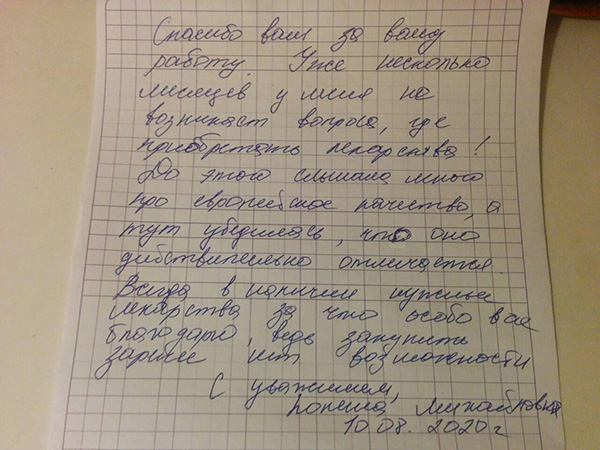 Спасибо вам за вашу
работу. Уже несколько
месяцев у меня не
возникает вопроса, где
приобретать лекарства!
До этого слышала много
про европейское качество, а
тут убедилась, что оно
действительно отличается.
Всегда в наличии нужные
лекарства за что особо вас
благодарю, ведь закупить
заранее нет возможности
С уважением,
Михайловна
10.08.2020г